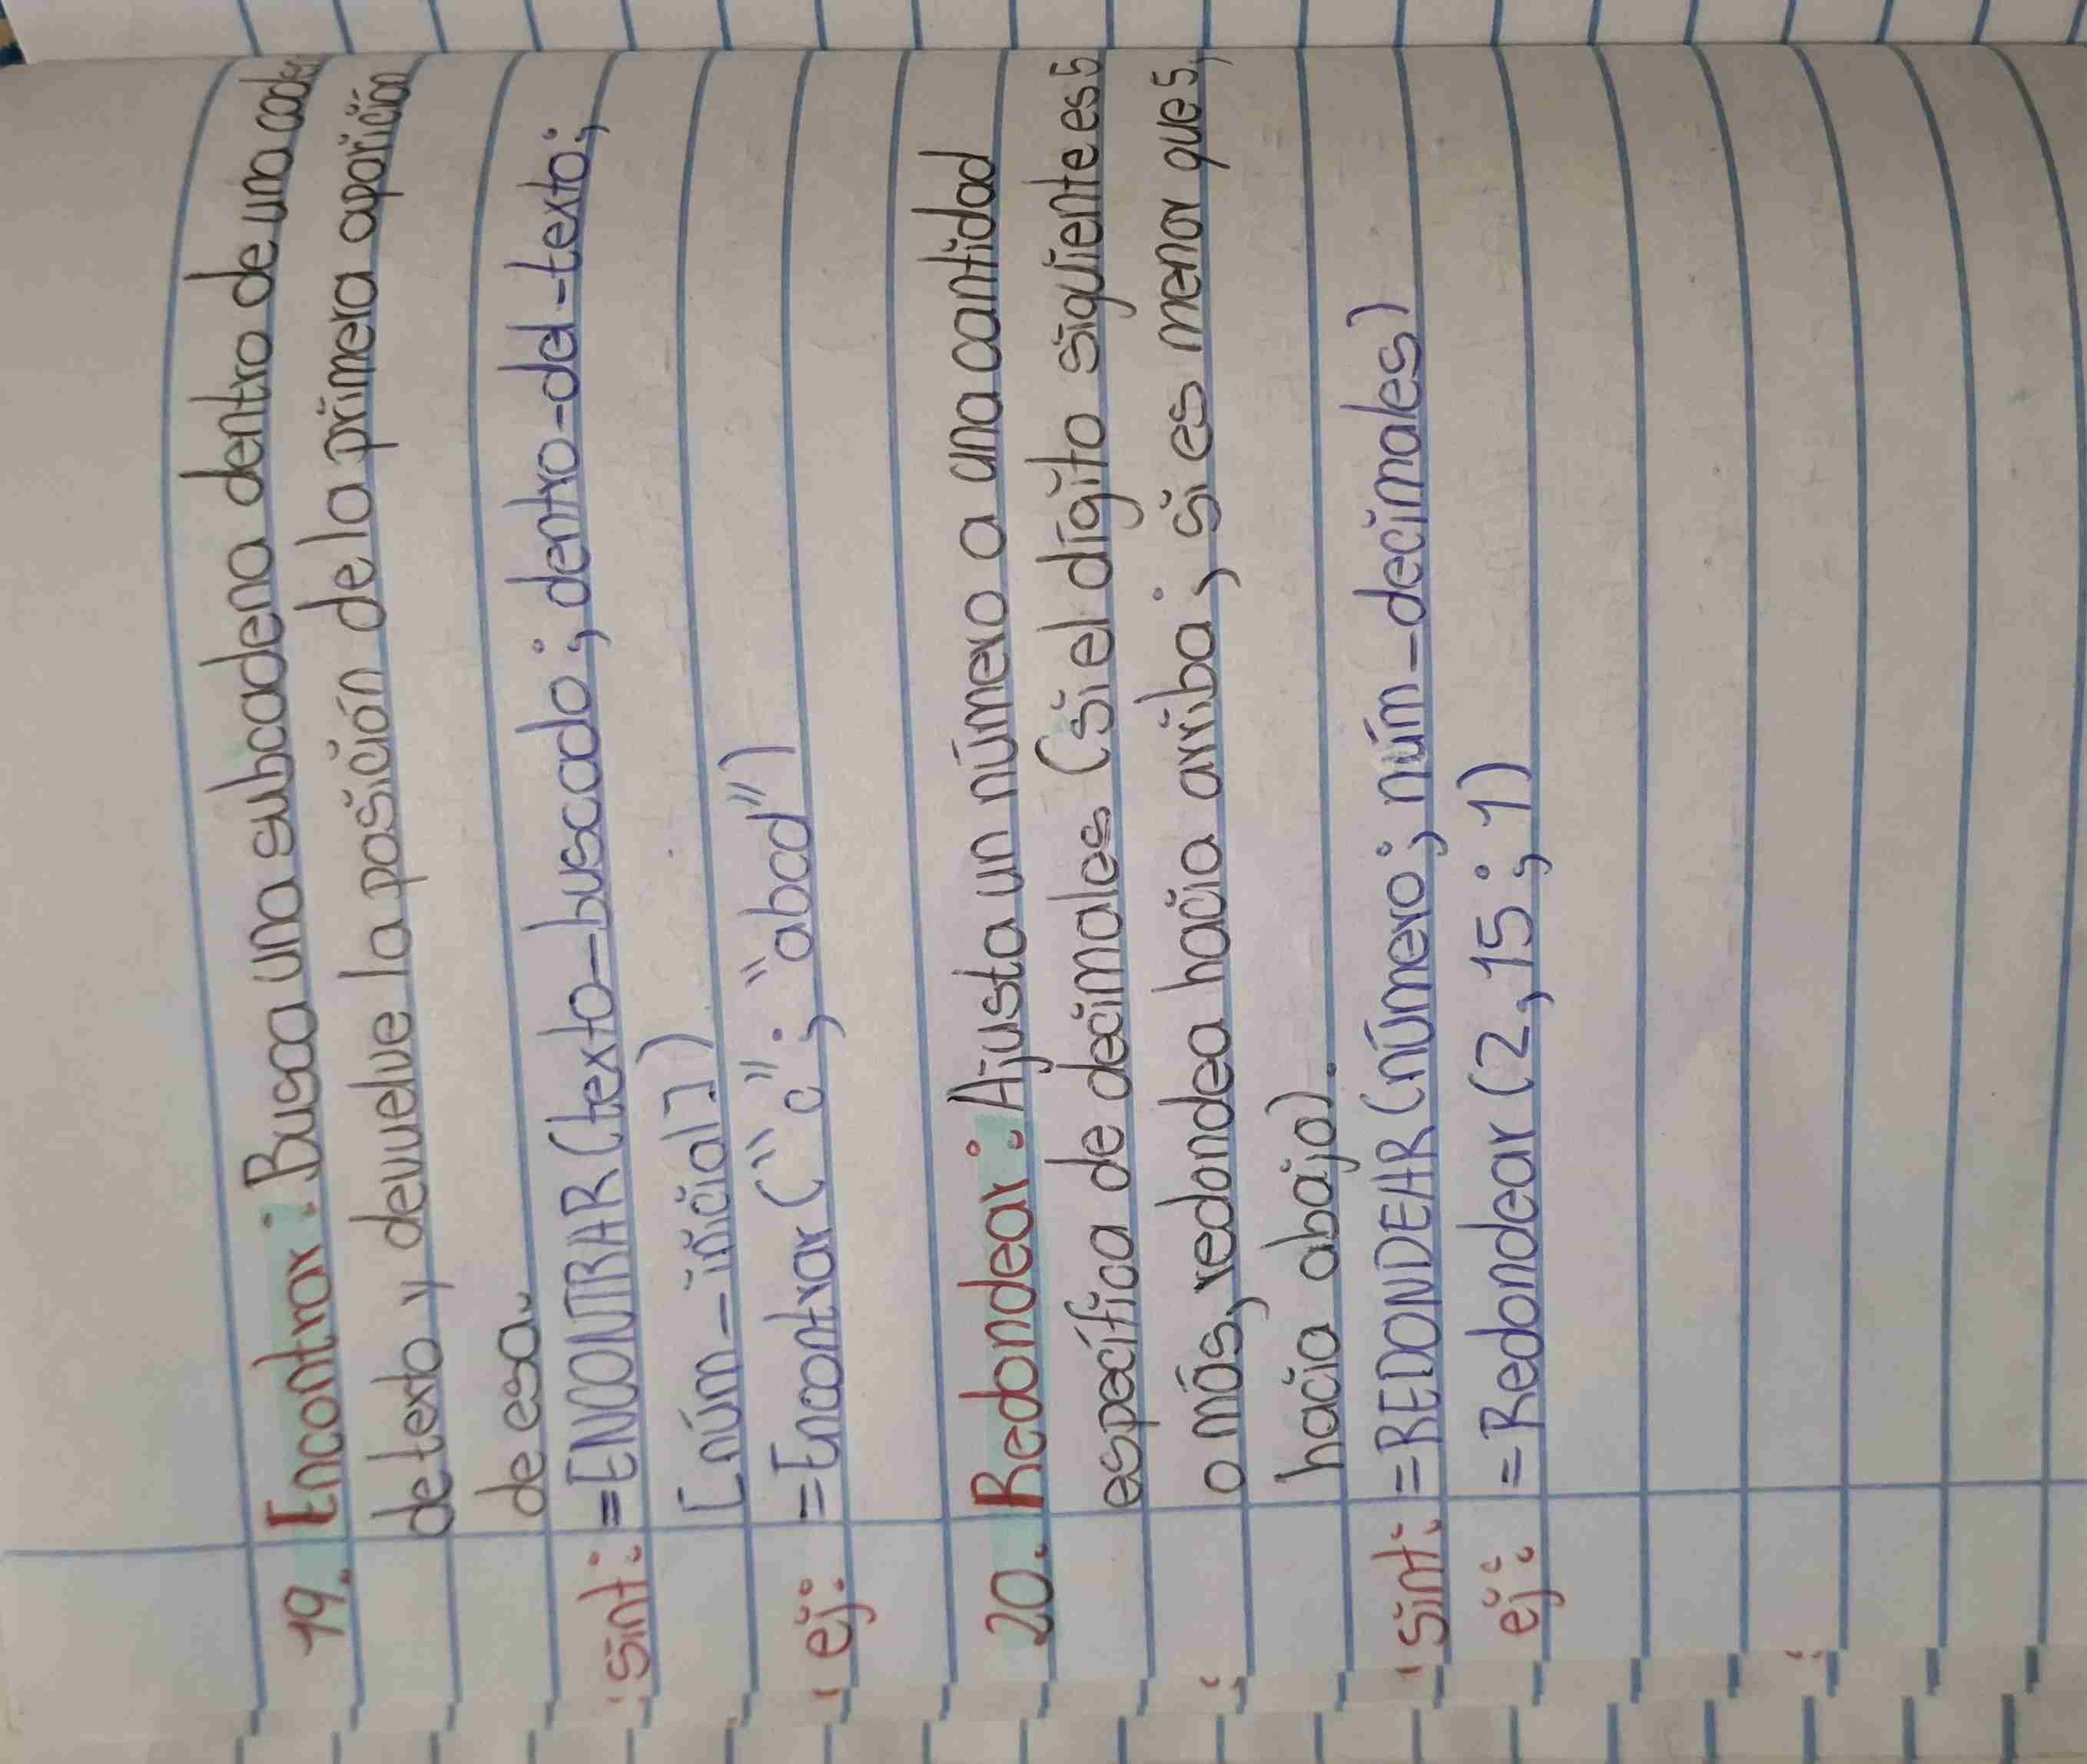 19. Encontrar: Busca una subcadena dentro de una
de texto y devuelve la posición de la primera aparición
de esa.
sint: =ENCONTRAR(texto_buscado; dentro-del-texto;
[núm-inicial])
ej: =Encontrar("c"; "abcd")
20. Redondear: Ajusta un número a una cantidad
específica de decimales (si el dígito siguiente es 5
o más, redondea hacia arriba; si es menor que 5,
hacia abajo).
sint: =REDONDEAR(número; núm_decimales)
ej: =Redondear(2,15;1)